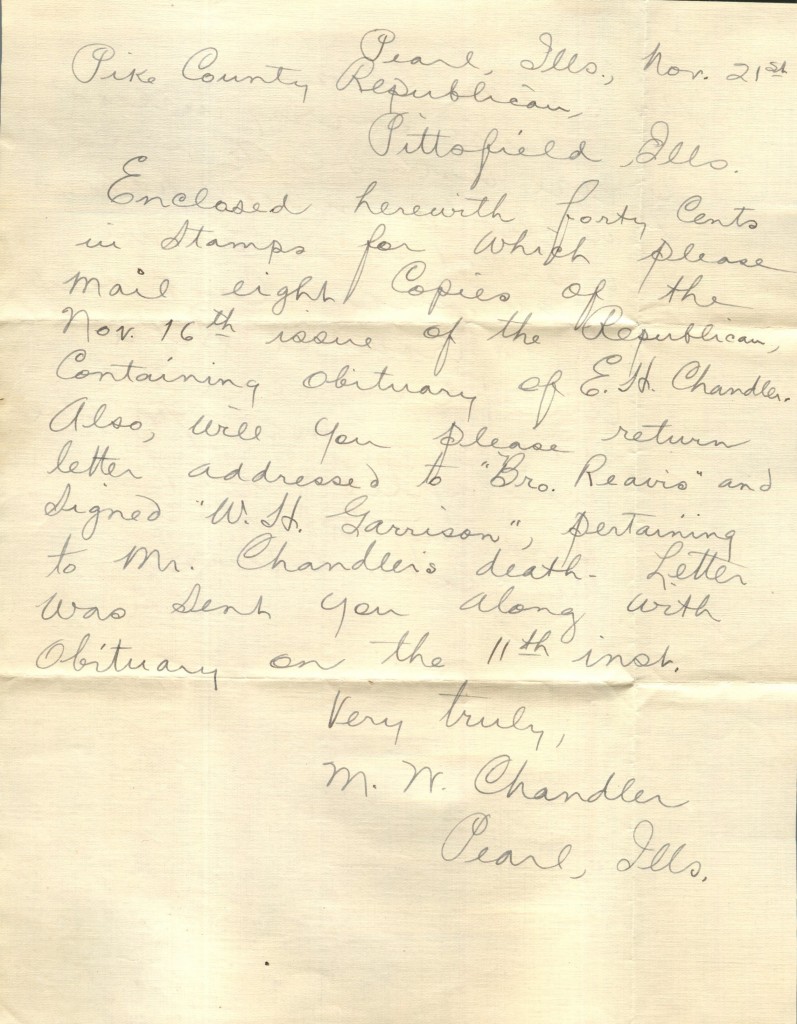 Pearl, Ills., Nov. 21st
Pike County Republican,
Pittsfield Ills.
Enclosed herewith forty Cents
in Stamps for which please
Mail eight Copies of the
Nov. 16th issue of the Republican,
Containing obituary of E. H. Chandler.
Also, will you please return
letter addressed to "Bro. Reavis" and
Signed "W. H. Garrison", pertaining
to Mr. Chandler's death. Letter
was sent you along with
Obituary on the 11th inst.
Very truly,
M. W. Chandler
Pearl, Ills.